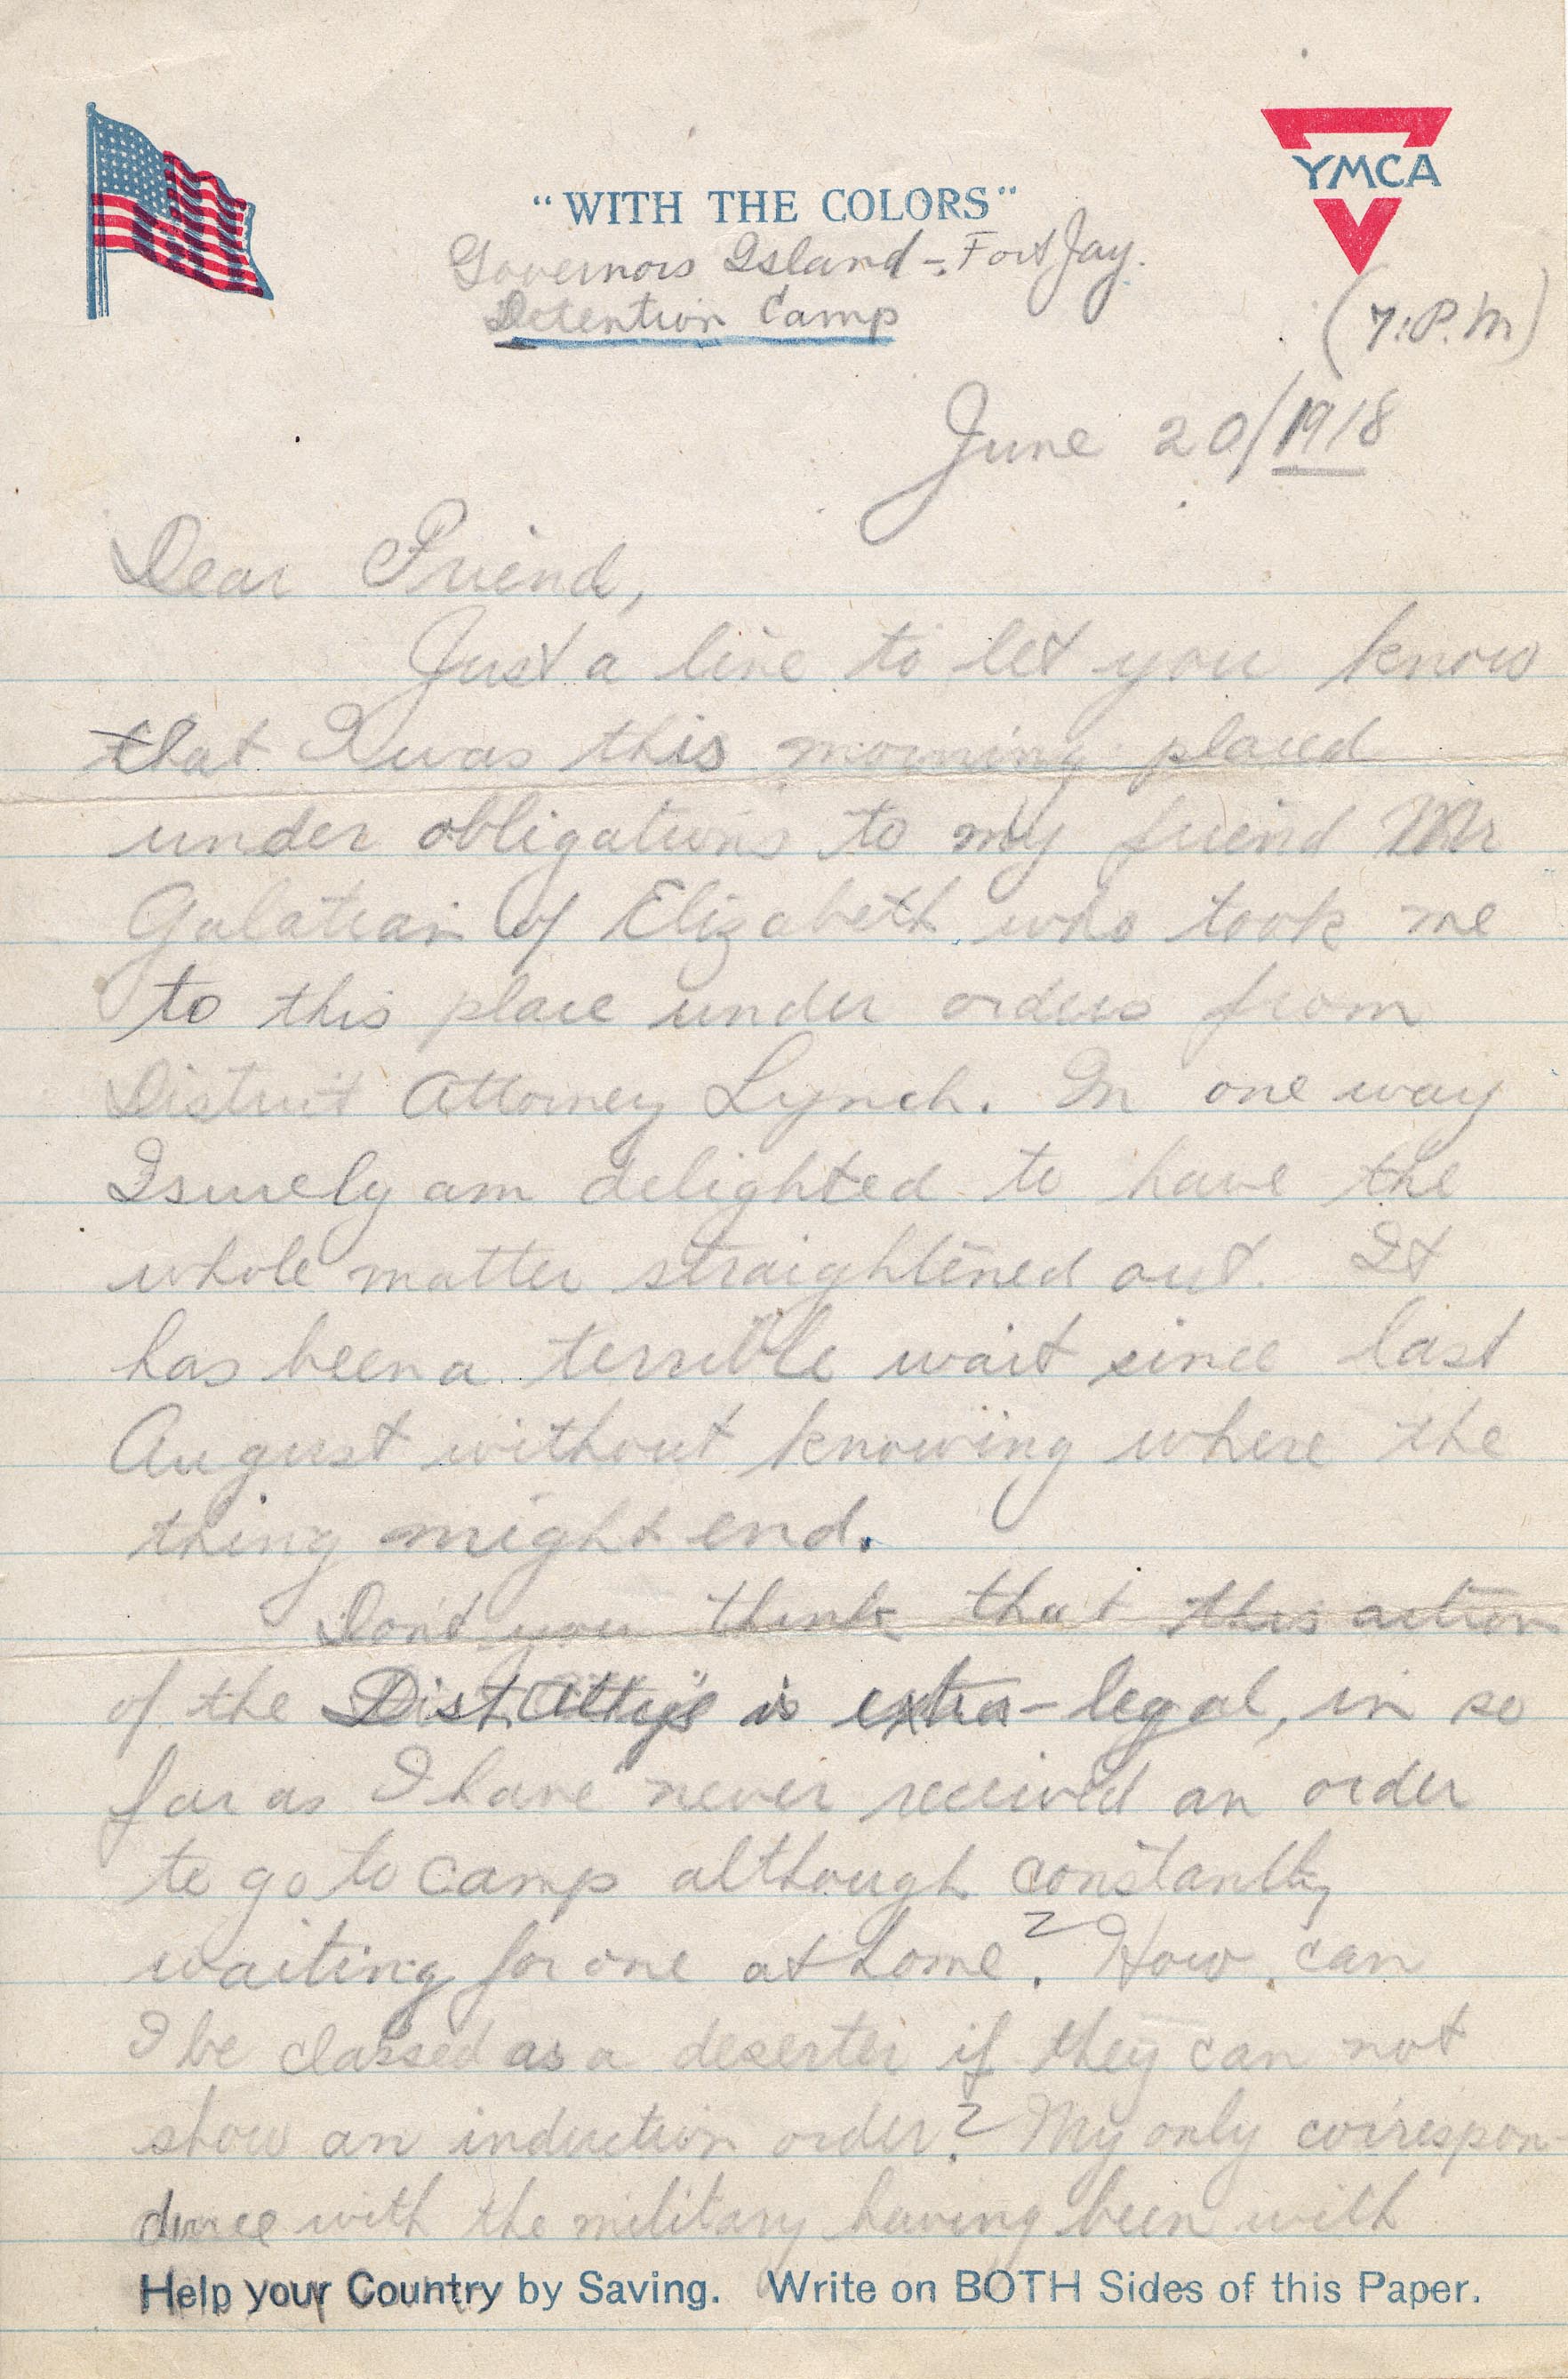 "WITH THE COLORS"
YMCA
Governors Island - Fort Jay.
Detention Camp
(7:P.M)
June 20/1918
Dear Friend,
Just a line to let you know
that I was this morning placed
under obligations to my friend Mr
Galatian of Elizabeth who took me
to this place under orders from
District Attorney Lynch. In one way
I surely am delighted to have the
whole matter straightened out. It
has been a terrible wait since last
August without knowing where the
thing might end.
Dont you think that this action
of the Dist. Atty's is extra-legal, in so
far as I have never received an order
to go to camp although constantly
waiting for one at home? How can
I be classed as a deserter if they can not
show an induction order? My only correspon-
dence with the military having been with
Help your Country by Saving. Write on BOTH Sides of this Paper.